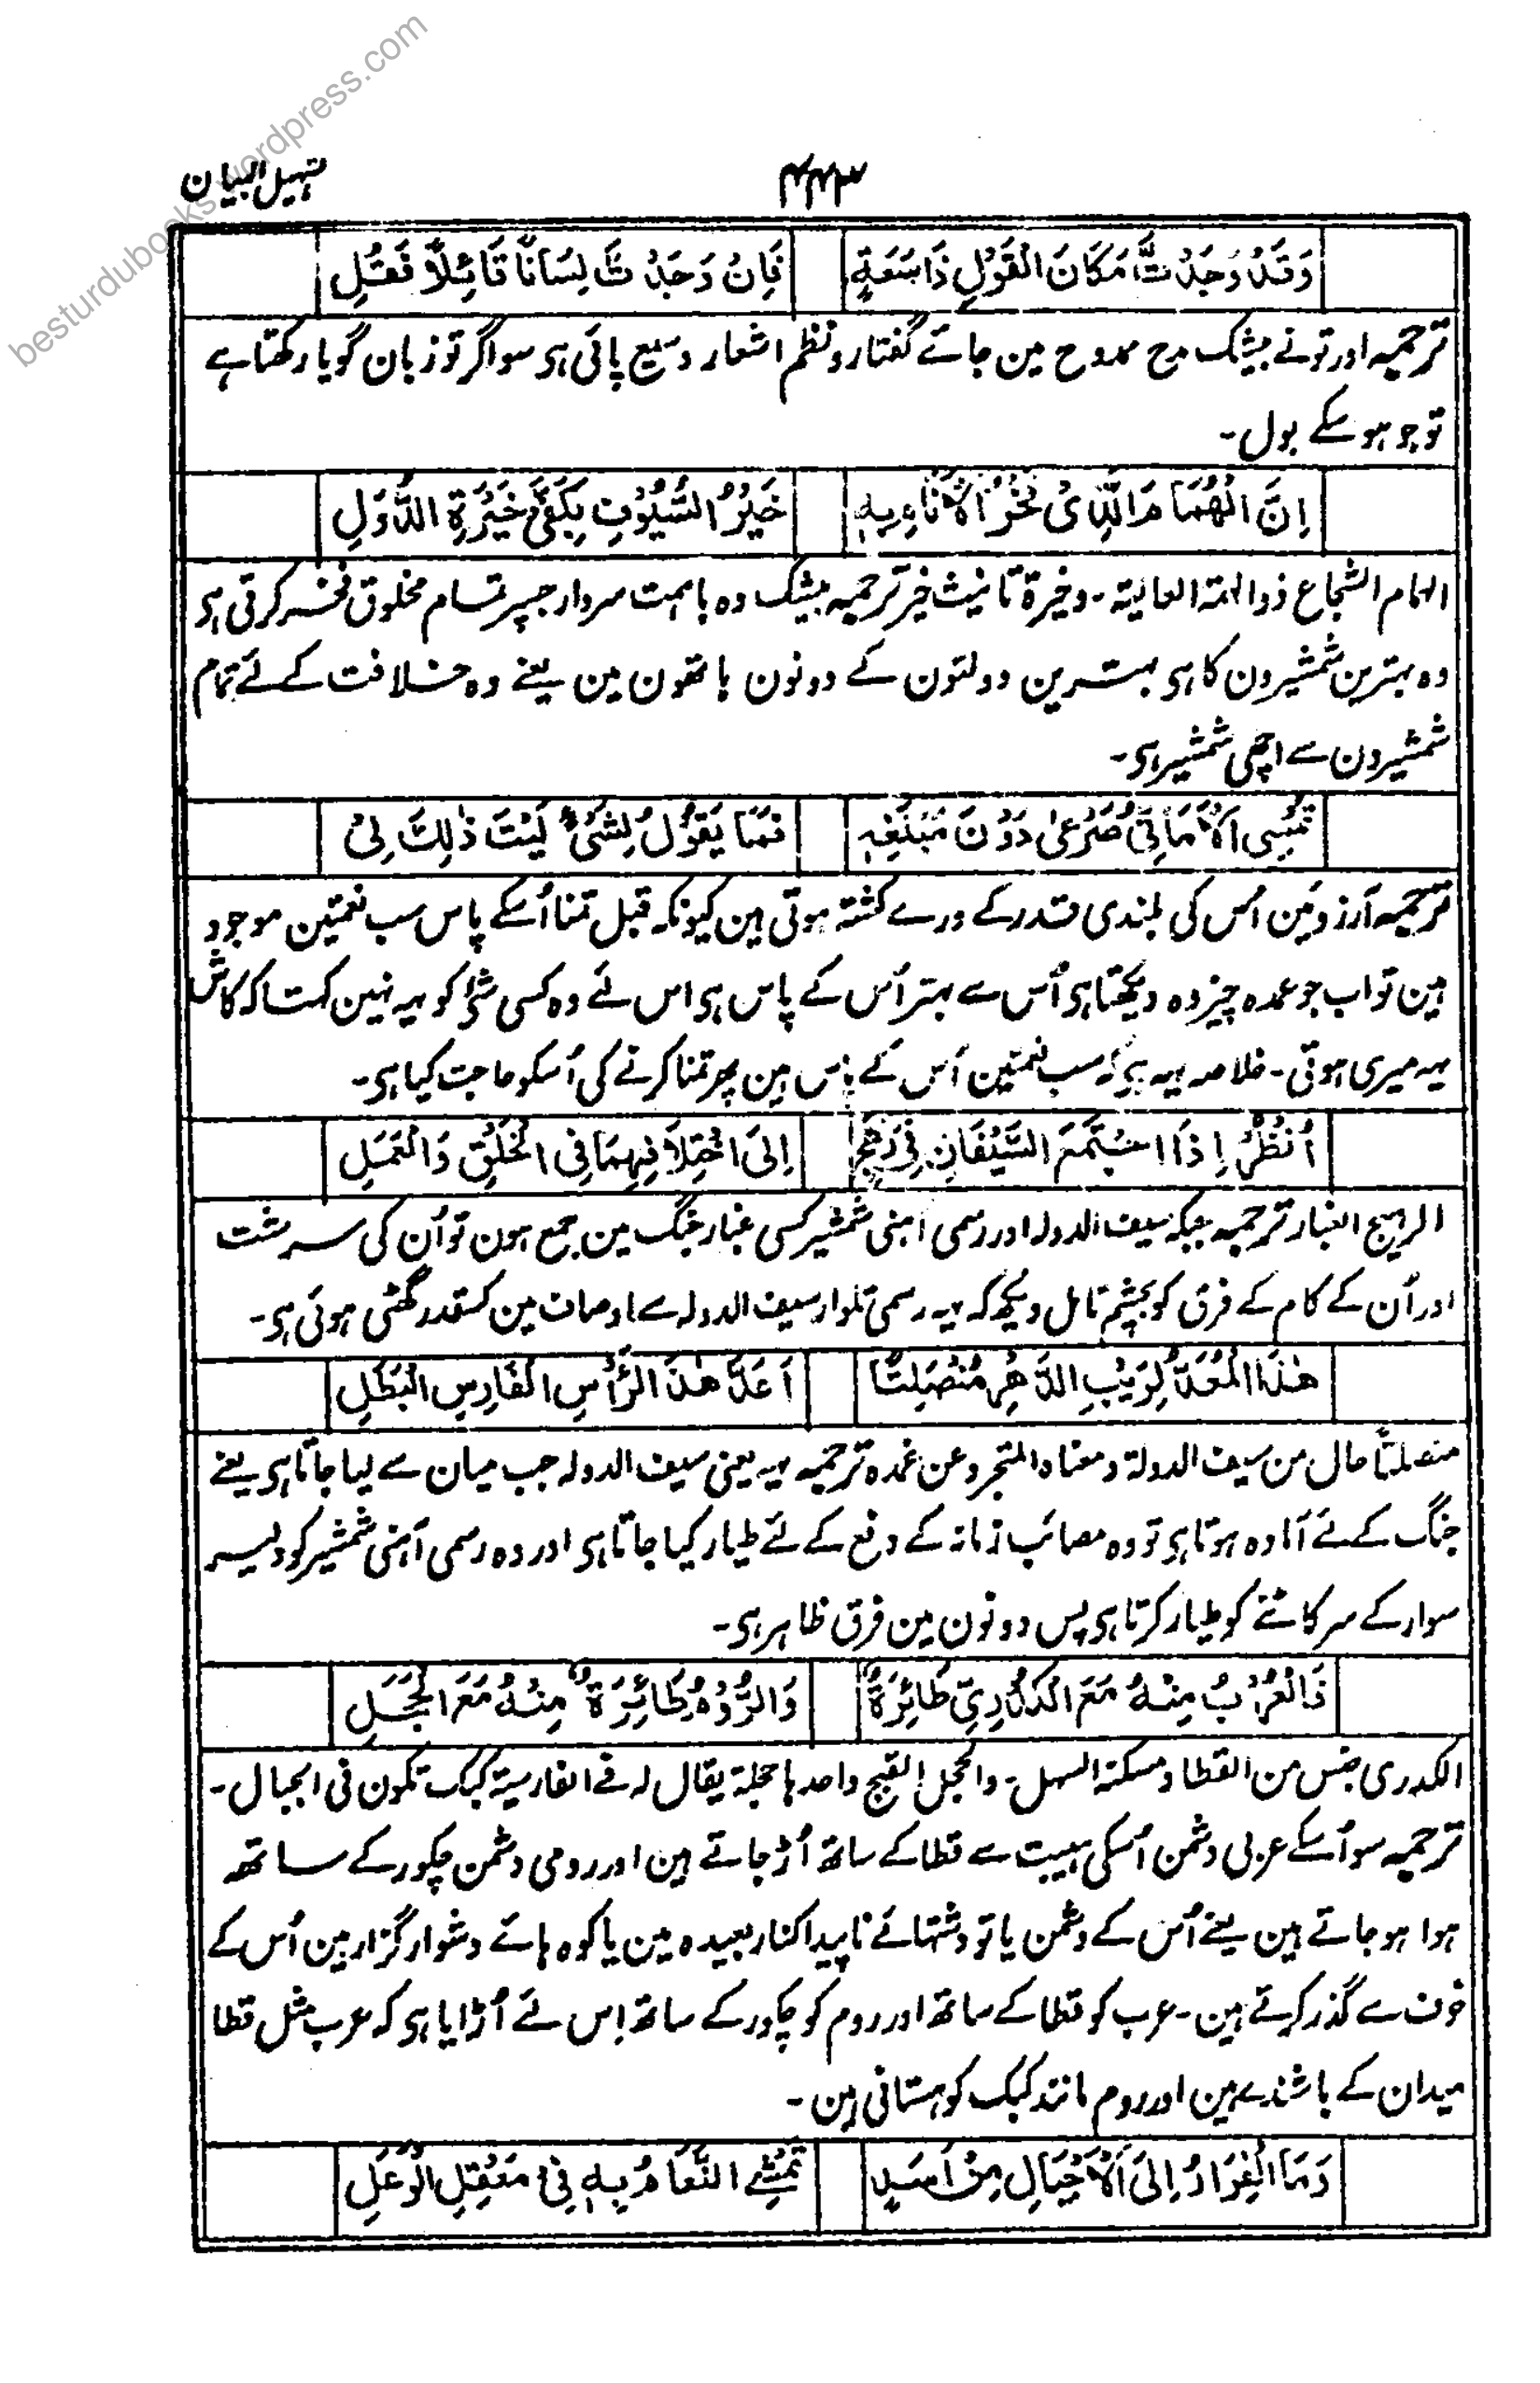 besturdubooks.wordpress.com
تسہیل البیان
۴۴۳
وَقَدْ وَجَدْتَّ مَكَانَ الْقَوْلِ ذَا سَعَةٍ فَاِنْ وَجَدْتَّ لِسَانًا قَائِلًا فَقُلِ
ترجمہ اور تونے بیشک مدح ممدوح مین جائے گفتار و نظم اشعار وسیع پائی ہی سو اگر تو زبان گویا رکھتا ہے
تو جو ہو سکے بول۔
اِنَّ الْهُمَامَ الَّذِیْ فَخْرُ الْاَنَامِ بِهٖ خَيْرُ السُّيُوْفِ بِكَفَّیْ خَيْرَةِ الدُّوَلِ
الہمام الشجاع ذوالہمۃ العالیۃ۔ وخیرۃ تانیث خیر ترجمہ بیشک وہ باہمت سردار جسپر تمام مخلوق فخر کرتی ہی
وہ بہترین شمشیرون کا ہی بہترین دولتون کے دونون ہاتھون مین یعنے وہ خلافت کے لئے تمام
شمشیرون سے اچھی شمشیر ہی۔
تُمْسِی الْاَمَانِیُّ صَرْعٰی دُوْنَ مَبْلَغِهٖ فَمَا يَقُوْلُ لِشَیْءٍ لَيْتَ ذٰلِكَ لِیْ
ترجمہ آرزوئین اُس کی بلندی قدر کے ورے کشتہ ہوتی ہین کیونکہ قبل تمنا اُسکے پاس سب نعمتین موجود
ہین تو اب جو عمدہ چیز وہ دیکھتا ہی اُس سے بہتر اُس کے پاس ہی اس لئے وہ کسی شئ کو یہہ نہین کہتا کہ کاش
یہہ میری ہوتی۔ خلاصہ یہہ ہی کہ سب نعمتین اُس کے پاس ہین پھر تمنا کرنے کی اُسکو حاجت کیا ہی۔
اُنْظُرْ اِذَا اجْتَمَعَ السَّيْفَانِ فِیْ رَهَجٍ اِلَی اخْتِلَافِهِمَا فِی الْخَلْقِ وَالْعَمَلِ
الرہج الغبار ترجمہ جبکہ سیف الدولہ اور رسمی آہنی شمشیر کسی غبار جنگ مین جمع ہون تو اُن کی سرشت
اور اُن کے کام کے فرق کو بچشم تامل دیکھ کہ یہہ رسمی تلوار سیف الدولہ سے اوصاف مین کسقدر گھٹی ہوئی ہی۔
هٰذَا الْمُعَدُّ لِرَيْبِ الدَّهْرِ مُنْصَلِتًا اَعَدَّ هٰذَا لِرَأْسِ الْفَارِسِ الْبَطَلِ
منصلتاً حال من سیف الدولۃ ومعناہ المتجرد عن غمدہ ترجمہ یہہ یعنی سیف الدولہ جب میان سے لیا جاتا ہی یعنے
جنگ کے لئے آمادہ ہوتا ہی تو وہ مصائب زمانہ کے دفع کے لئے طیار کیا جاتا ہی اور وہ رسمی آہنی شمشیر کو دلیر
سوار کے سر کاٹنے کو طیار کرتا ہی پس دونون مین فرق ظاہر ہی۔
فَالْعُرْبُ مِنْهُ مَعَ الْكُدْرِیِّ طَائِرَةٌ وَالرُّوْمُ طَائِرَةٌ مِنْهُ مَعَ الْحَجَلِ
الکدری جنس من القطا ومسکنہ السہل۔ والحجل القبج واحدہا حجلۃ یقال لہ فے الفارسیۃ کبک تکون فی الجبال۔
ترجمہ سو اُسکے عربی دشمن اُسکی ہیبت سے قطا کے ساتھ اُڑ جاتے ہین اور رومی دشمن چکور کے ساتھ
ہوا ہو جاتے ہین یعنے اُس کے دشمن یا تو دشتہائے ناپیدا کنار بعیدہ مین یا کوہ ہائے دشوار گزار مین اُس کے
خوف سے گذر کرتے ہین۔ عرب کو قطا کے ساتھ اور روم کو چکور کے ساتھ اِس لئے اُڑایا ہی کہ عرب مثل قطا
میدان کے باشندے ہین اور روم مانند کبک کوہستانی ہین۔
وَمَا الْفِرَارُ اِلَی الْاَجْبَالِ مِنْ اَسَدٍ تَمْشِی النَّعَامُ بِهٖ فِیْ مَعْقِلِ الْوَعَلِ